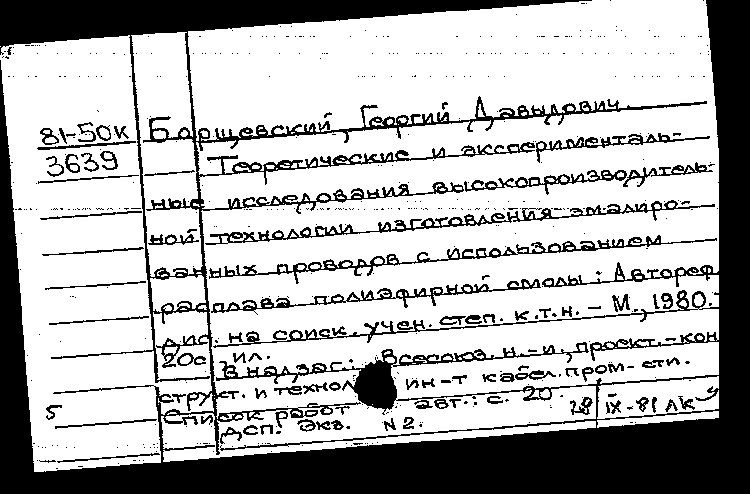 81-50к Барщевский, Георгий Давыдович
3639 Теоретические и эксперименталь-
ные исследования высокопроизводитель-
ной технологии изготовления эмалиро-
ванных проводов с использованием
расплава полиэфирной смолы: Автореф.
дис. на соиск. учен. степ. к.т.н. - М., 1980. -
20с. ил.
В надзаг.: Всесоюз. н.-и., проект.-кон
структ. и технол ин-т кабел. пром-сти.
5 Список работ авт.: с. 20.
ДСП. Экз. N2. 28 IX-81 ЛК